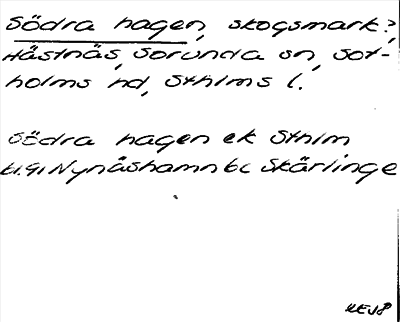 Södra hagen, skogsmark?,
Hästnäs, Sorunda sn, Sot-
holms hd, Sthlms l.
Södra hagen ek Sthlm
61.91 Nynäshamn bl Skärlinge